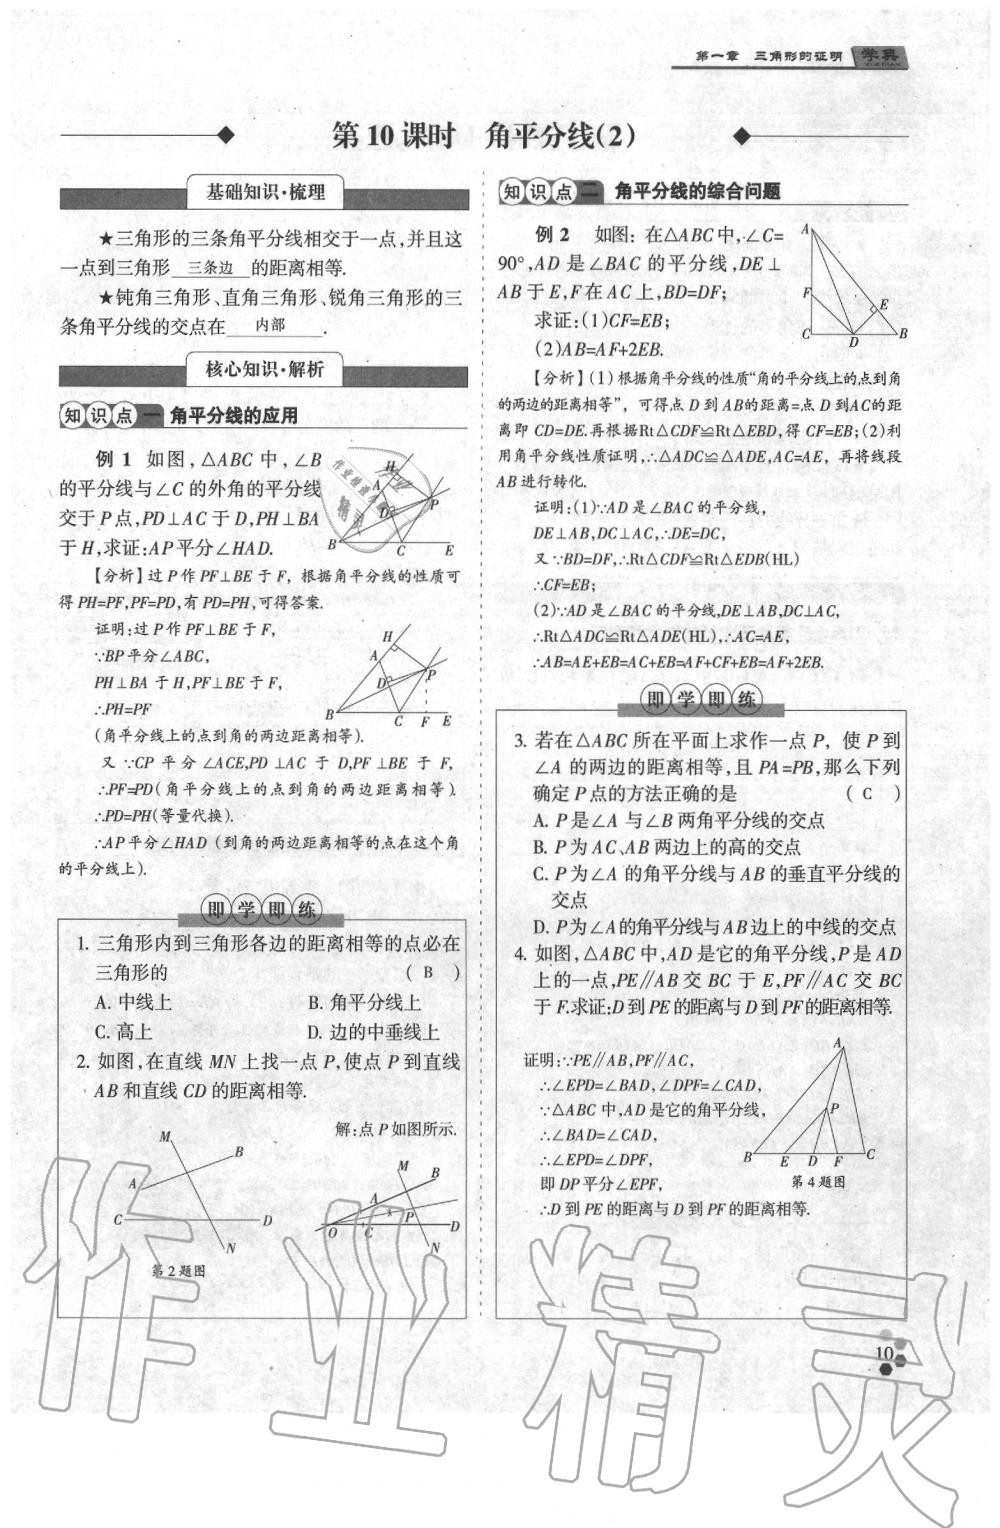 第一章 三角形的证明 学典
第 10 课时 角平分线(2)
基础知识·梳理
★三角形的三条角平分线相交于一点,并且这
一点到三角形 三条边 的距离相等.
★钝角三角形、直角三角形、锐角三角形的三
条角平分线的交点在 内部 .
核心知识·解析
知识点一 角平分线的应用
例 1 如图,△ABC 中,∠B
的平分线与∠C 的外角的平分线
交于 P 点,PD⊥AC 于 D,PH⊥BA
于 H,求证:AP平分∠HAD.
H
A
D
P
B
C
E
【分析】过 P 作 PF⊥BE 于 F, 根据角平分线的性质可
得 PH=PF,PF=PD,有 PD=PH,可得答案.
证明:过 P 作 PF⊥BE 于 F,
∵BP平分∠ABC,
PH⊥BA 于 H,PF⊥BE 于 F,
∴PH=PF
(角平分线上的点到角的两边距离相等).
H
A
D
P
B
C F E
又 ∵CP 平分 ∠ACE,PD ⊥AC 于 D,PF ⊥BE 于 F,
∴PF=PD(角平分线上的点到角的两边距离相等).
∴PD=PH(等量代换).
∴AP平分∠HAD (到角的两边距离相等的点在这个角
的平分线上).
即学即练
1. 三角形内到三角形各边的距离相等的点必在
三角形的 ( B )
A. 中线上 B. 角平分线上
C. 高上 D. 边的中垂线上
2. 如图,在直线 MN 上找一点 P,使点 P 到直线
AB 和直线 CD 的距离相等.
解:点 P 如图所示.
M
B
A
C
D
N
第2题图
M
B
A
P
D
O C
N
知识点二 角平分线的综合问题
例 2 如图: 在△ABC中,∠C=
90°,AD 是∠BAC 的平分线,DE⊥
AB 于 E,F 在 AC 上,BD=DF;
求证:(1)CF=EB;
(2)AB=AF+2EB.
A
F
E
C
D
B
【分析】(1) 根据角平分线的性质“角的平分线上的点到角
的两边的距离相等”, 可得点 D 到 AB的距离=点 D 到AC的距
离即 CD=DE.再根据Rt△CDF≌Rt△EBD,得 CF=EB;(2)利
用角平分线性质证明,∴△ADC≌△ADE,AC=AE, 再将线段
AB 进行转化.
证明:(1)∵AD 是∠BAC 的平分线,
DE⊥AB,DC⊥AC,∴DE=DC,
又 ∵BD=DF,∴Rt△CDF≌Rt△EDB(HL)
∴CF=EB;
(2)∵AD 是∠BAC 的平分线,DE⊥AB,DC⊥AC,
∴Rt△ADC≌Rt△ADE(HL),∴AC=AE,
∴AB=AE+EB=AC+EB=AF+CF+EB=AF+2EB.
即学即练
3. 若在△ABC 所在平面上求作一点 P, 使 P 到
∠A 的两边的距离相等,且 PA=PB,那么下列
确定 P 点的方法正确的是 ( C )
A. P 是∠A 与∠B 两角平分线的交点
B. P 为 AC、AB 两边上的高的交点
C. P 为∠A 的角平分线与 AB 的垂直平分线的
交点
D. P为∠A的角平分线与AB边上的中线的交点
4. 如图,△ABC 中,AD 是它的角平分线,P 是 AD
上的一点,PE∥AB 交 BC 于 E,PF∥AC 交 BC
于 F.求证:D 到 PE 的距离与 D 到 PF 的距离相等.
证明:∵PE∥AB,PF∥AC,
∴∠EPD=∠BAD,∠DPF=∠CAD,
∵△ABC 中,AD 是它的角平分线,
∴∠BAD=∠CAD,
∴∠EPD=∠DPF,
即 DP 平分∠EPF,
∴D 到 PE 的距离与 D 到 PF 的距离相等.
A
P
B E D F C
第4题图
10
作业精灵